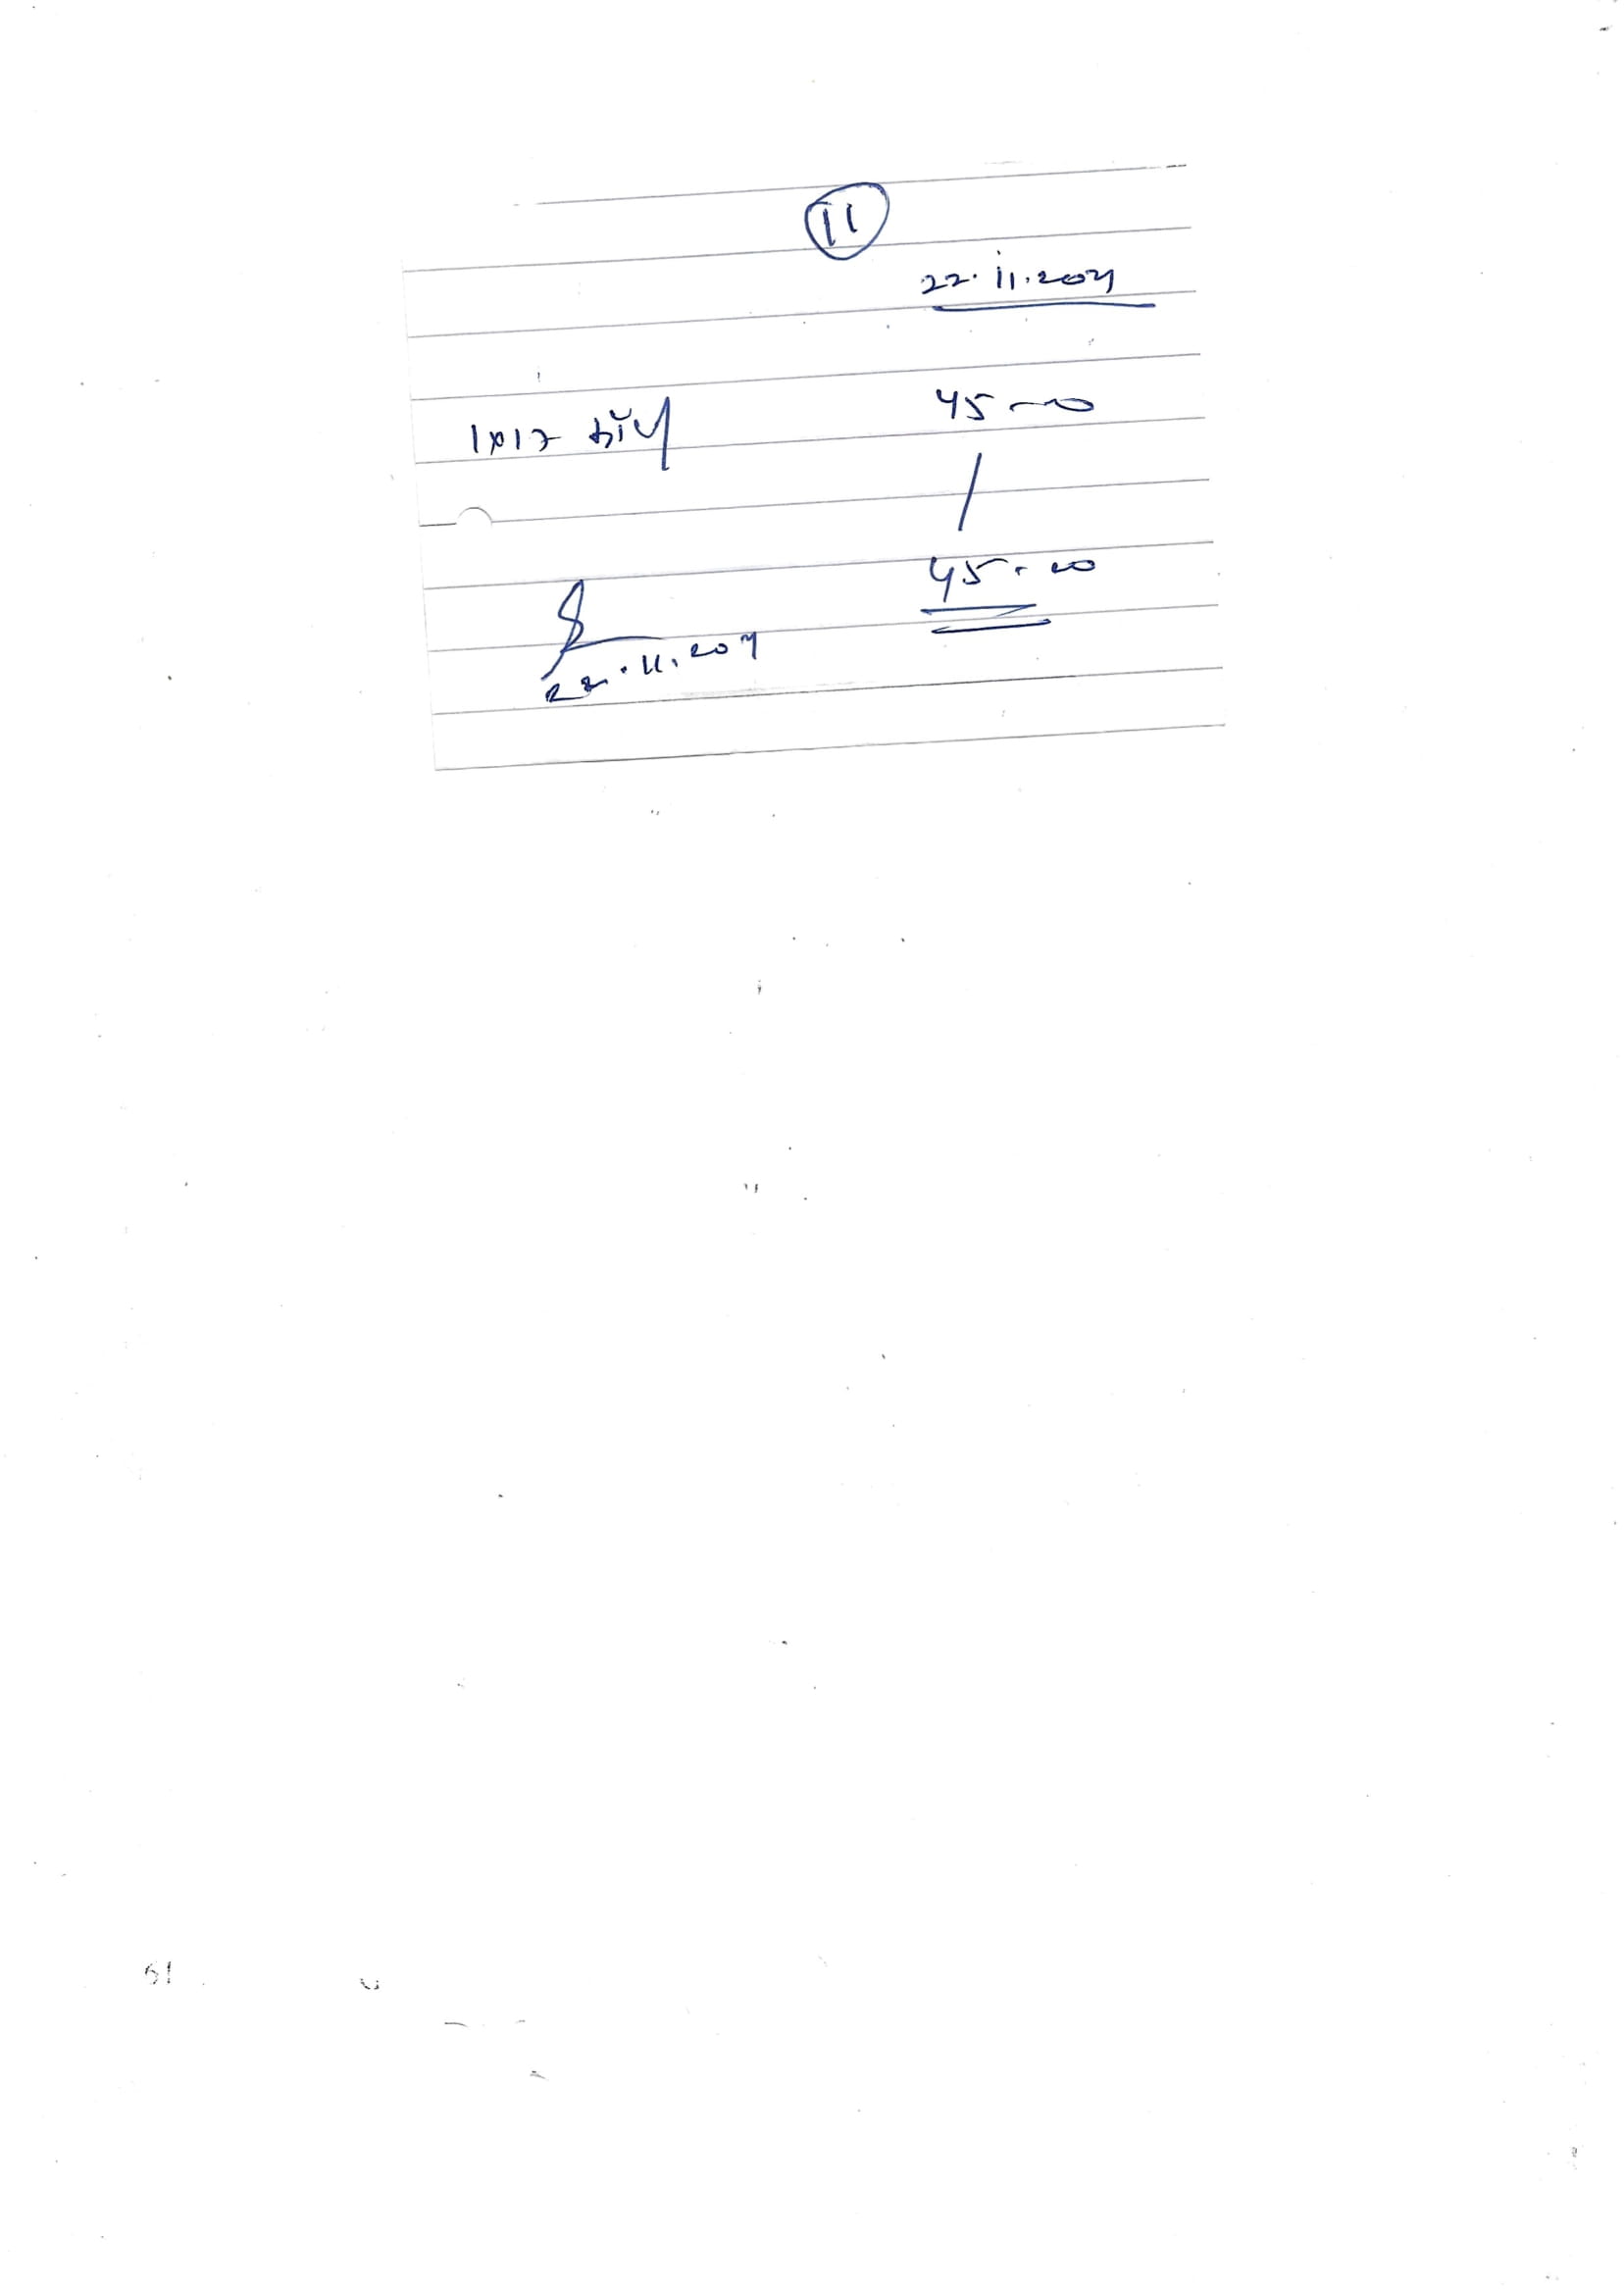 11
22.11.2021
1x17 45-00
45.00
22.11.2021